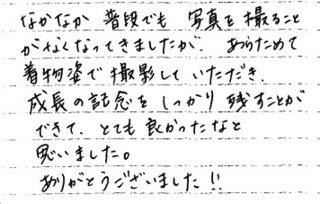 なかなか 普段でも 写真を撮ること
がなくなってきましたが、あらためて
着物姿で撮影していただき、
成長の記念をしっかり残すことが
できて、とても良かったなと
思いました。
ありがとうございました!!